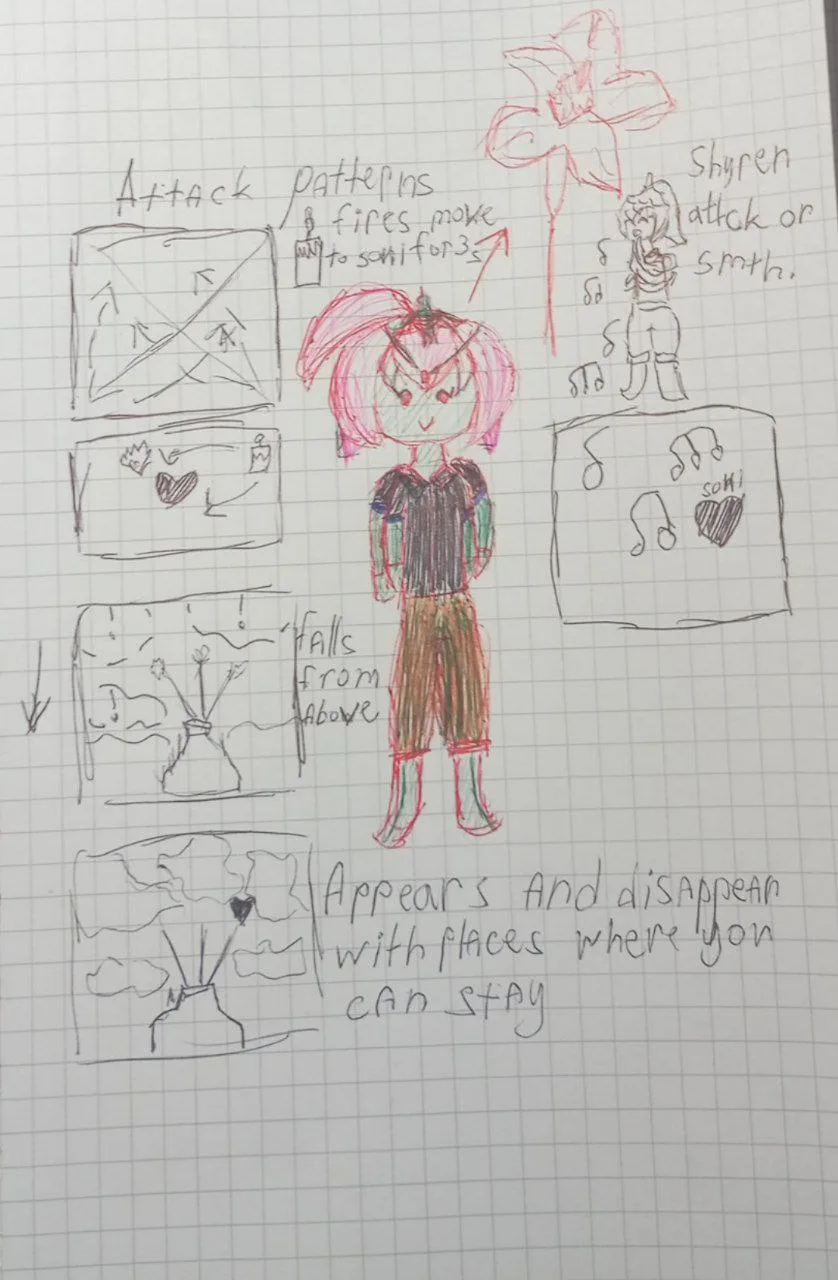 Attack patterns
fires move
to soul for 3s
Shyren
attck or
smth.
soul
falls
from
above
Appears and disappear
with places where you
can stay